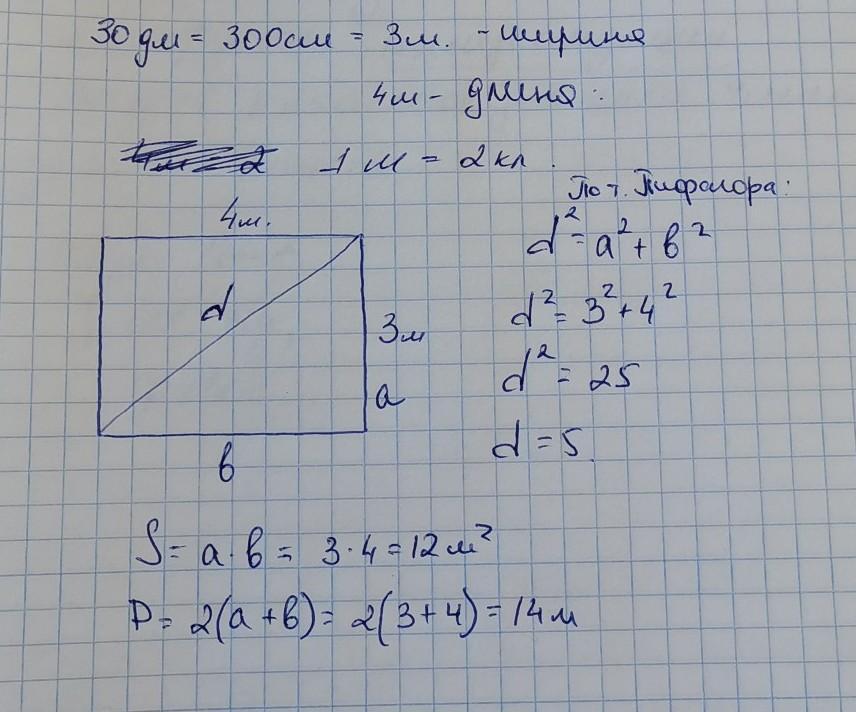 30 дм = 300см = 3м. - ширина
4м - длина.
1 м = 2 кл.
По т. Пифагора:
4м.
d² = a² + b²
d
d² = 3² + 4²
3м
d² = 25
a
d = 5.
b
S = a · b = 3 · 4 = 12 м²
P = 2(a + b) = 2(3 + 4) = 14 м